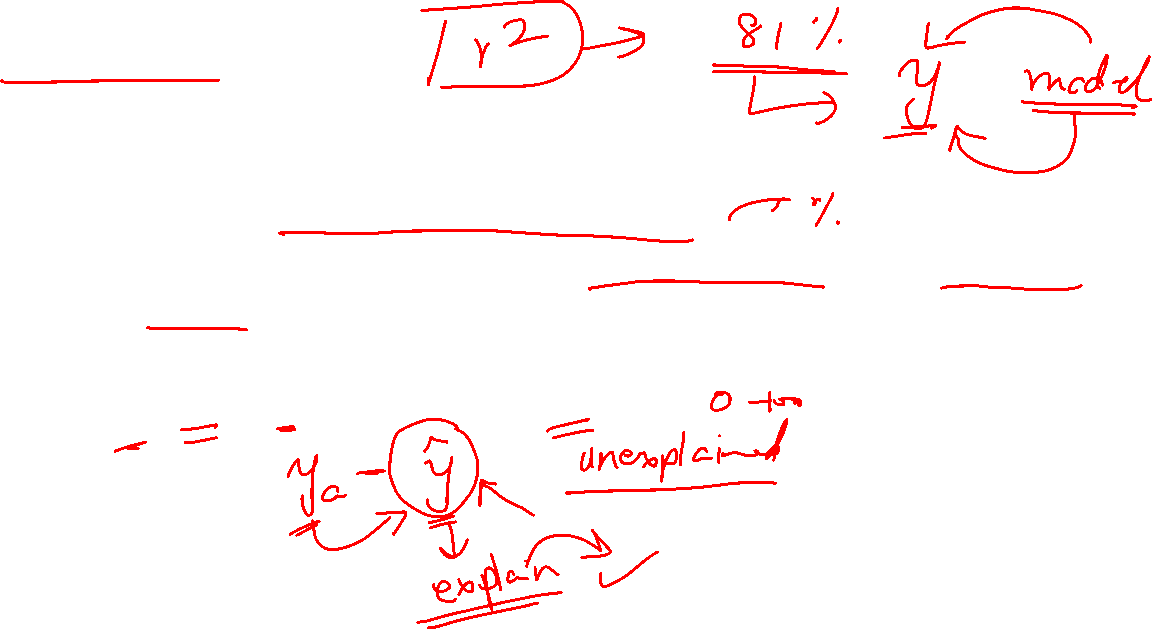 r² → 81 % y model
%
- = -
0 to
y_a - ŷ = unexplained
explain ✓